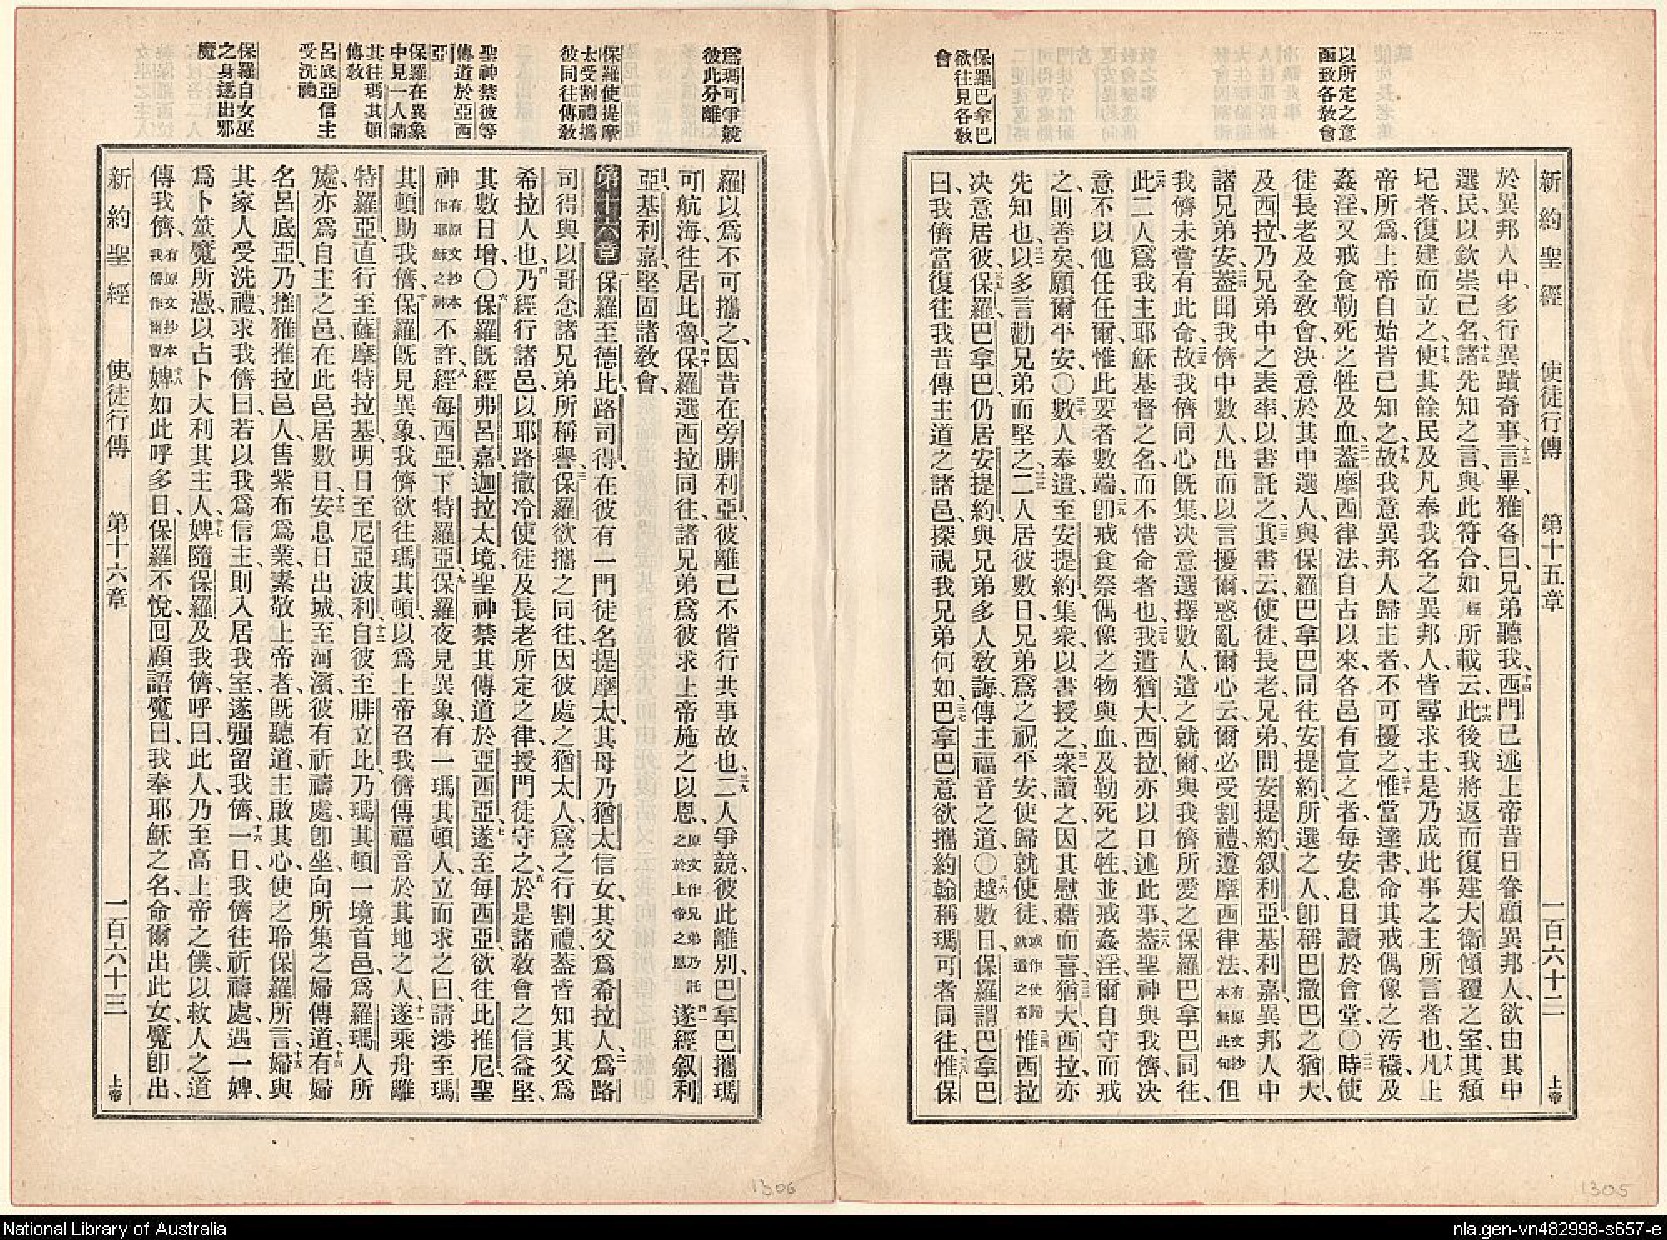 以所定之意
函致各教會
保羅巴拿巴
欲往見各教
會
新約聖經 使徒行傳 第十五章 一百六十二 上帝
於異邦人中多行異蹟奇事十三言畢雅各曰兄弟聽我十四西門已述上帝昔日眷顧異邦人欲由其中
選民以欽崇己名十五諸先知之言與此符合如經所載云十六此後我將返而復建大衛傾覆之室其頹
圮者復建而立之十七使其餘民及凡奉我名之異邦人皆尋求主是乃成此事之主所言者也十八凡上
帝所爲上帝自始皆已知之十九故我意異邦人歸主者不可擾之二十惟當達書命其戒偶像之汚穢及
姦淫又戒食勒死之牲及血二一蓋摩西律法自古以來各邑有宣之者每安息日讀於會堂〇二二時使
徒長老及全教會決意於其中選人與保羅巴拿巴同往安提約所選之人卽稱巴撒巴之猶大
及西拉乃兄弟中之表率二三以書託之其書云使徒長老兄弟問安提約叙利亞基利嘉異邦人中
諸兄弟安二四蓋聞我儕中數人出而以言擾爾惑亂爾心云爾必受割禮遵摩西律法有原文抄本無此句但
我儕未嘗有此命二五故我儕同心旣集決意選擇數人遣之就爾與我儕所愛之保羅巴拿巴同往
二六此二人爲我主耶穌基督之名而不惜命者也二七我遣猶大西拉亦以口述此事二八蓋聖神與我儕決
意不以他任任爾惟此要者數端二九卽戒食祭偶像之物與血及勒死之牲並戒姦淫爾自守而戒
之則善矣願爾平安〇三十數人奉遣至安提約集衆以書授之三一衆讀之因其慰藉而喜三二猶大西拉亦
先知也以多言勸兄弟而堅之三三二人居彼數日兄弟爲之祝平安使歸就使徒或作使歸就遣之者三四惟西拉
決意居彼三五保羅巴拿巴仍居安提約與兄弟多人教誨傳主福音之道〇三六越數日保羅謂巴拿巴
曰我儕當復往我昔傳主道之諸邑探視我兄弟何如三七巴拿巴意欲攜約翰稱瑪可者同往三八惟保
爲瑪可爭競
彼此分離
保羅使提摩
太受割禮攜
彼同往傳教
聖神禁彼等
傳道於亞西
亞
保羅在異象
中見一人請
其往瑪其頓
傳教
呂底亞信主
受洗禮
保羅自女巫
之身逐出邪
魔
羅以爲不可攜之因昔在旁腓利亞彼離己不偕行共事故也三九二人爭競彼此離別巴拿巴攜瑪
可航海往居比魯四十保羅選西拉同往諸兄弟爲彼求上帝施之以恩原文作兄弟乃託之於上帝之恩四一遂經叙利
亞基利嘉堅固諸教會
第十六章 一保羅至德比路司得在彼有一門徒名提摩太其母乃猶太信女其父爲希拉人二爲路
司得與以哥念諸兄弟所稱譽三保羅欲攜之同往因彼處之猶太人爲之行割禮蓋皆知其父爲
希拉人也四乃經行諸邑以耶路撒冷使徒及長老所定之律授門徒守之五於是諸教會之信益堅
其數日增〇六保羅旣經弗呂嘉迦拉太境聖神禁其傳道於亞西亞七遂至每西亞欲往比推尼聖
神有原文抄本作耶穌之神不許八經每西亞下特羅亞九保羅夜見異象有一瑪其頓人立而求之曰請涉至瑪
其頓助我儕十保羅旣見異象我儕欲往瑪其頓以爲上帝召我儕傳福音於其地之人十一遂乘舟離
特羅亞直行至薩摩特拉基明日至尼亞波利十二自彼至腓立比乃瑪其頓一境首邑爲羅瑪人所
處亦爲自主之邑在此邑居數日十三安息日出城至河濱彼有祈禱處卽坐向所集之婦傳道十四有婦
名呂底亞乃推雅推拉邑人售紫布爲業素敬上帝者旣聽道主啟其心使之聆保羅所言十五婦與
其家人受洗禮求我儕曰若以我爲信主則入居我室遂强留我儕十六一日我儕往祈禱處遇一婢
爲卜筮魔所憑以占卜大利其主人十七婢隨保羅及我儕呼曰此人乃至高上帝之僕以救人之道
傳我儕有原文抄本我儕作爾曹十八婢如此呼多日保羅不悅回顧語魔曰我奉耶穌之名命爾出此女魔卽出
新約聖經 使徒行傳 第十六章 一百六十三 上帝
1306
1305
National Library of Australia
nla.gen-vn482998-s657-e